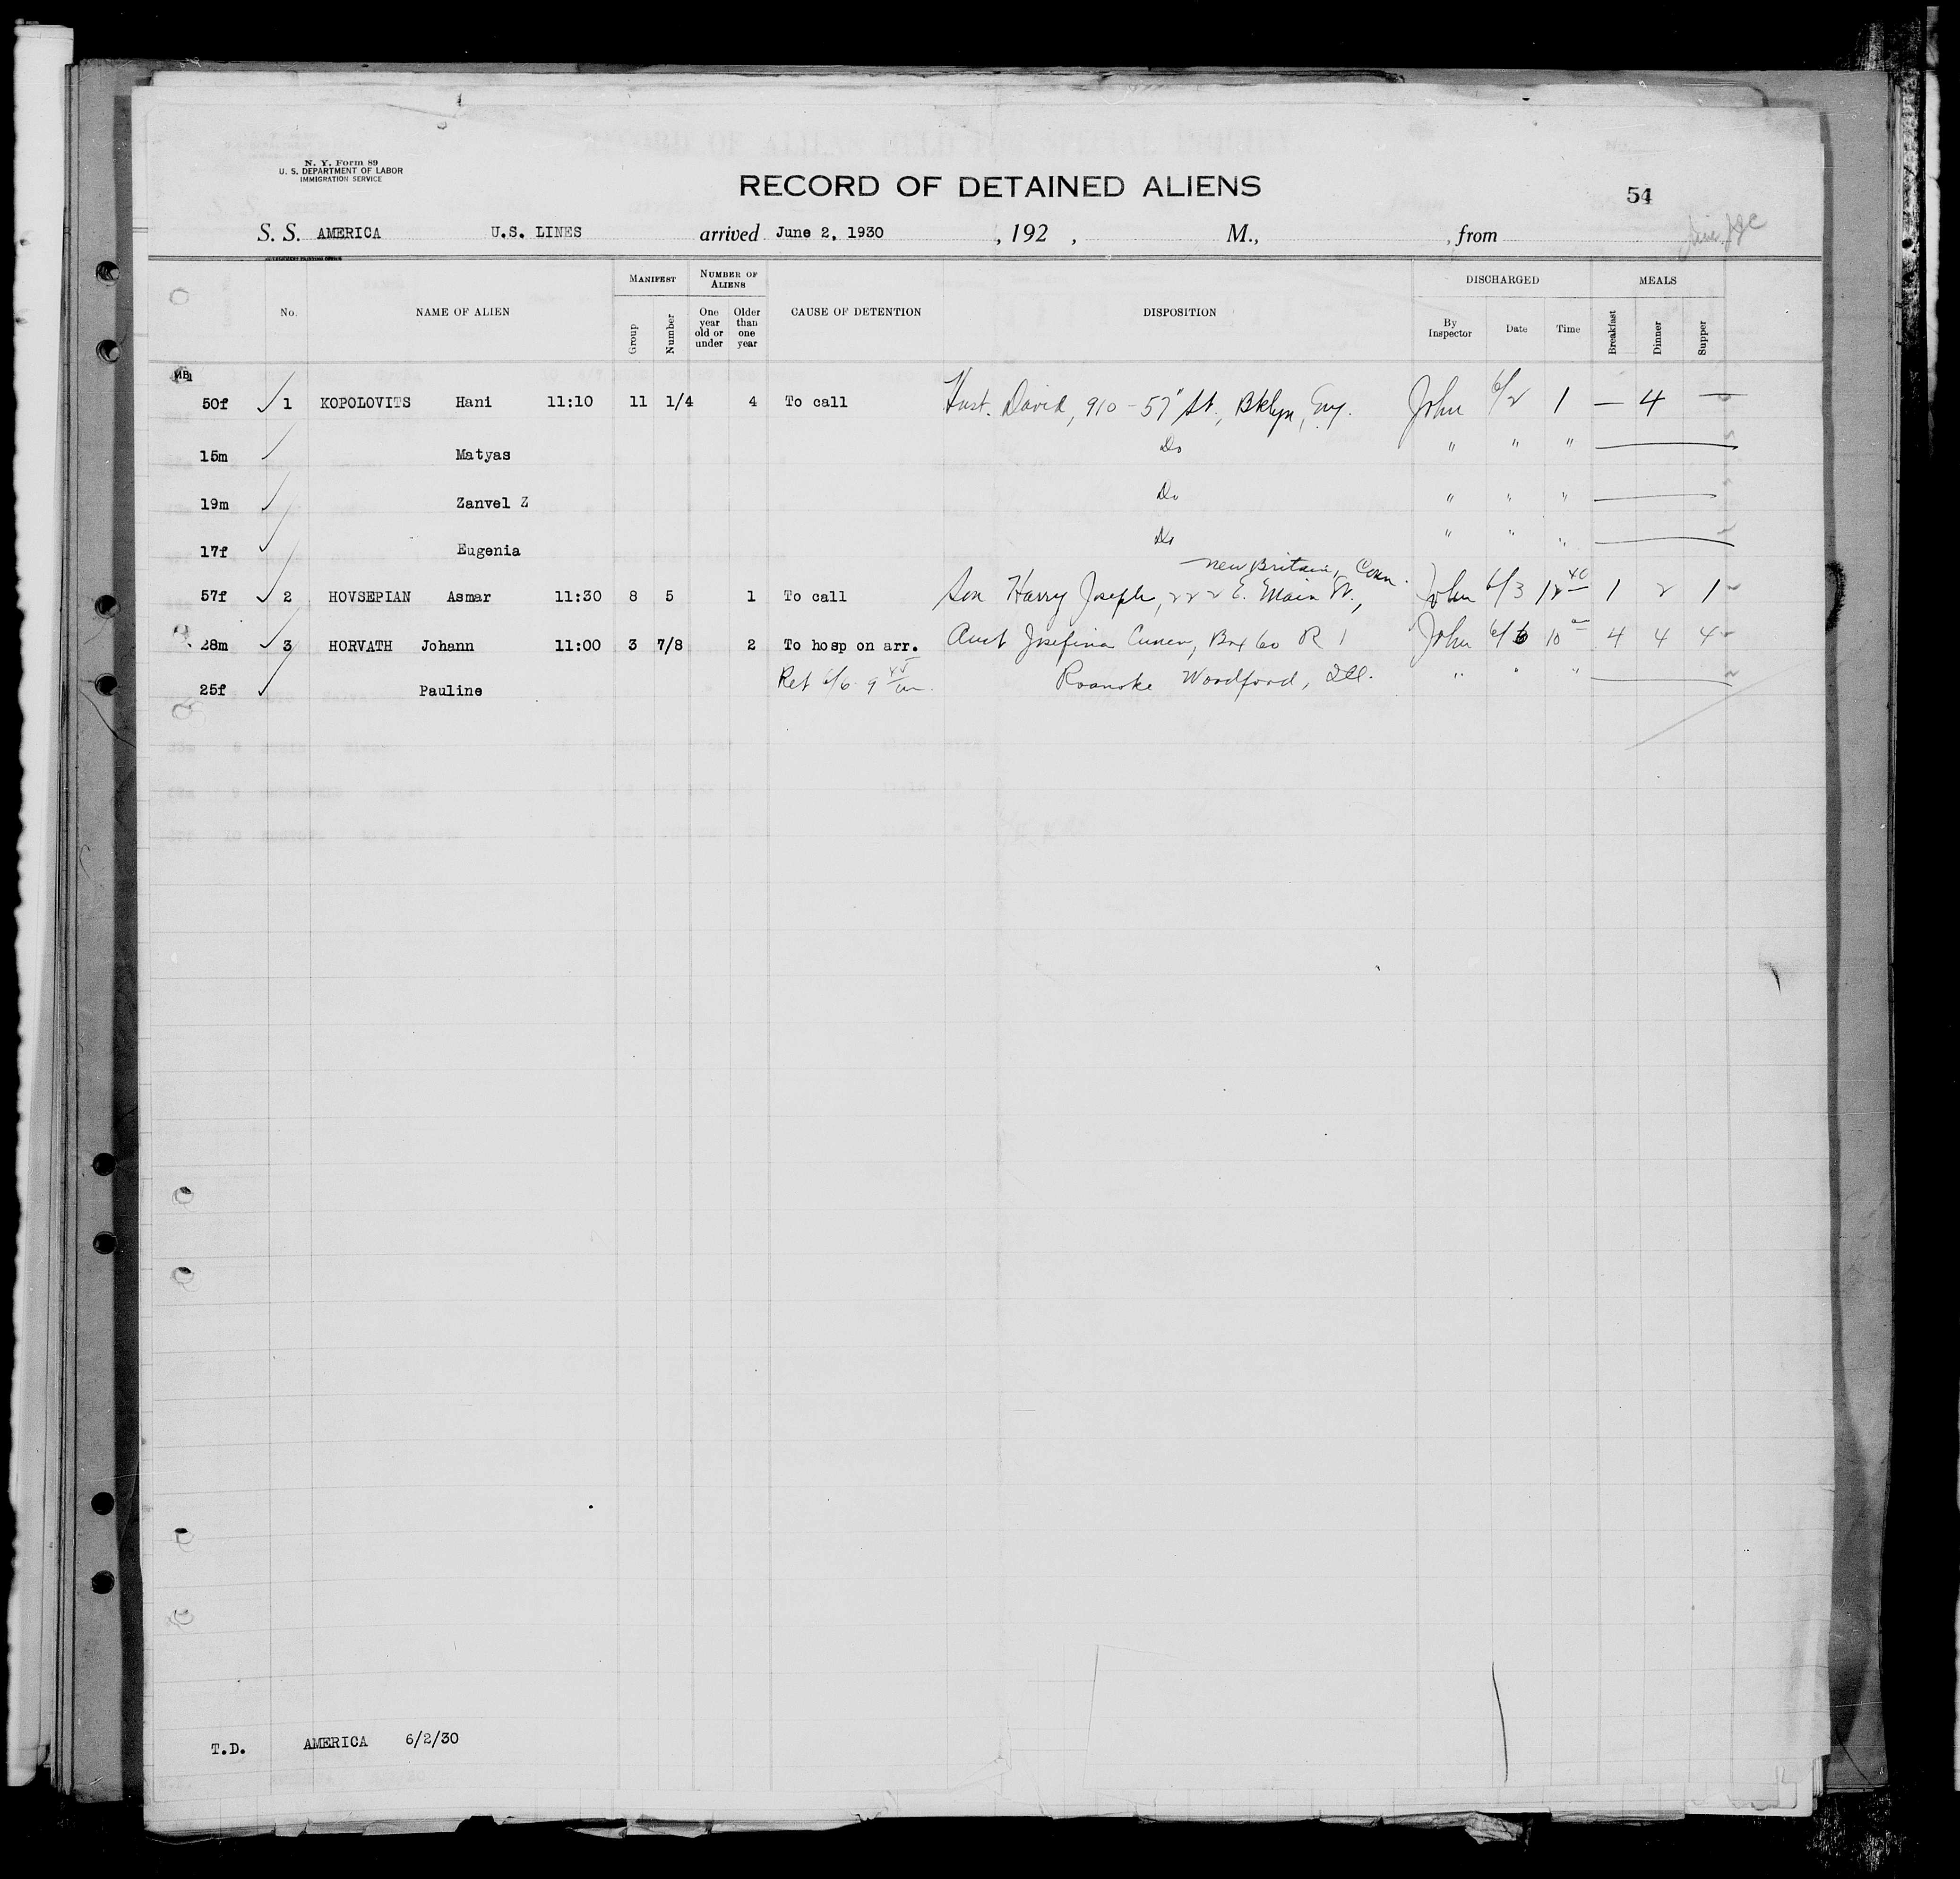 N. Y. Form 89
U. S. DEPARTMENT OF LABOR
IMMIGRATION SERVICE
RECORD OF DETAINED ALIENS
54
S. S. AMERICA U.S. LINES arrived June 2, 1930 , 192 , M., , from
No. NAME OF ALIEN MANIFEST Group Number NUMBER OF ALIENS One year old or under Older than one year CAUSE OF DETENTION DISPOSITION DISCHARGED By Inspector Date Time MEALS Breakfast Dinner Supper
50f 1 KOPOLOVITS Hani 11:10 11 1/4 4 To call Hust. David, 910 - 57" St., Bklyn, John 6/2 1 — 4 —
15m Matyas Do " " "
19m Zanvel Z Do " " "
17f Eugenia Do " " "
New Britain, Conn.
57f 2 HOVSEPIAN Asmar 11:30 8 5 1 To call Son Harry Joseph, 222 E. Main St., John 6/3 12 40 1 2 1
28m 3 HORVATH Johann 11:00 3 7/8 2 To hosp on arr. Aunt Josefina Box 60 R 1 John 6/6 10 4 4 4
25f Pauline Ret 6/6 9 45 am. Roanoke Woodford, Ill. " " "
T.D. AMERICA 6/2/30